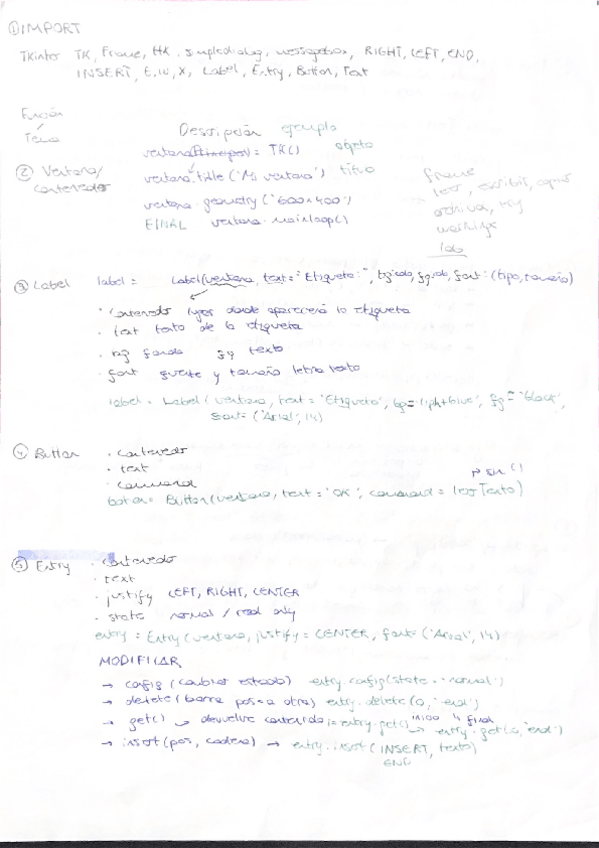 ① IMPORT
Tkinter TK, Frame, ttk, simpledialog, messagebox, RIGHT, LEFT, END,
INSERT, E, W, X, Label, Entry, Button, Text
Función
Tema
Descripción ejemplo
ventana = TK() objeto
② Ventana/
contenedor
ventana.title('Mi ventana') título
ventana.geometry('600x400')
FINAL ventana.mainloop()
frame
leer, escribir, abrir
archivos, try
③ Label label = Label(ventana, text="Etiqueta:", bg, fg, font:(tipo, tamaño)
· contenedor lugar donde aparecerá la etiqueta
· text texto de la etiqueta
· bg fondo fg texto
· font fuente y tamaño letra texto
label = Label(ventana, text='Etiqueta', bg='lightblue', fg='black',
font=('Arial', 14)
④ Button · contenedor
· text
· command → sin ()
boton = Button(ventana, text='OK', command = leerTexto)
⑤ Entry · contenedor
· text
· justify LEFT, RIGHT, CENTER
· state normal / read only
entry = Entry(ventana, justify = CENTER, font=('Arial', 14)
MODIFICAR
→ config (cambiar estado) entry.config(state='normal')
→ delete (borra pos a otra) entry.delete(0, 'end')
→ get() devuelve contenido = entry.get() inicio y final
→ entry.get(0, 'end')
→ insert(pos, cadena) → entry.insert(INSERT, texto)
END